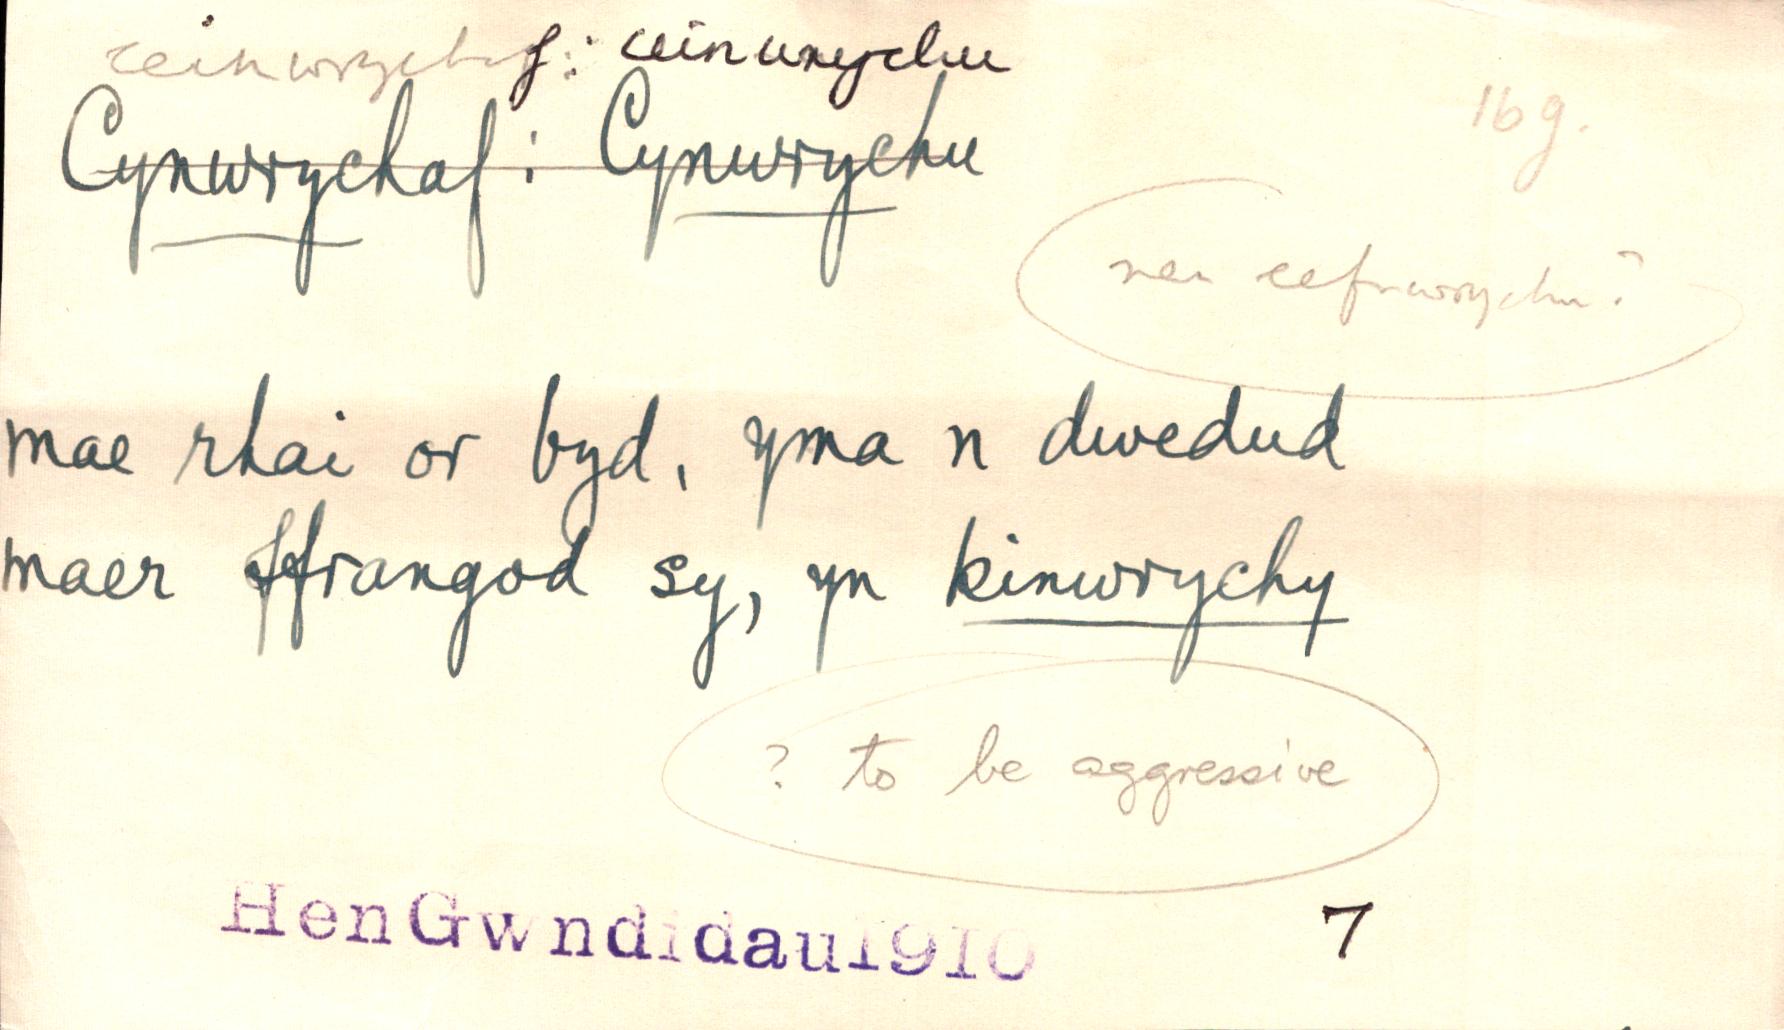 ceinwrychaf: ceinwrychu
16g.
Cynwrychaf: Cynwrychu
neu cefnwrychu?
mae rhai or byd, yma n dwedud
maer ffrangod sy, yn kinwrychy
? to be aggressive
Hen Gwndidau 1910 7